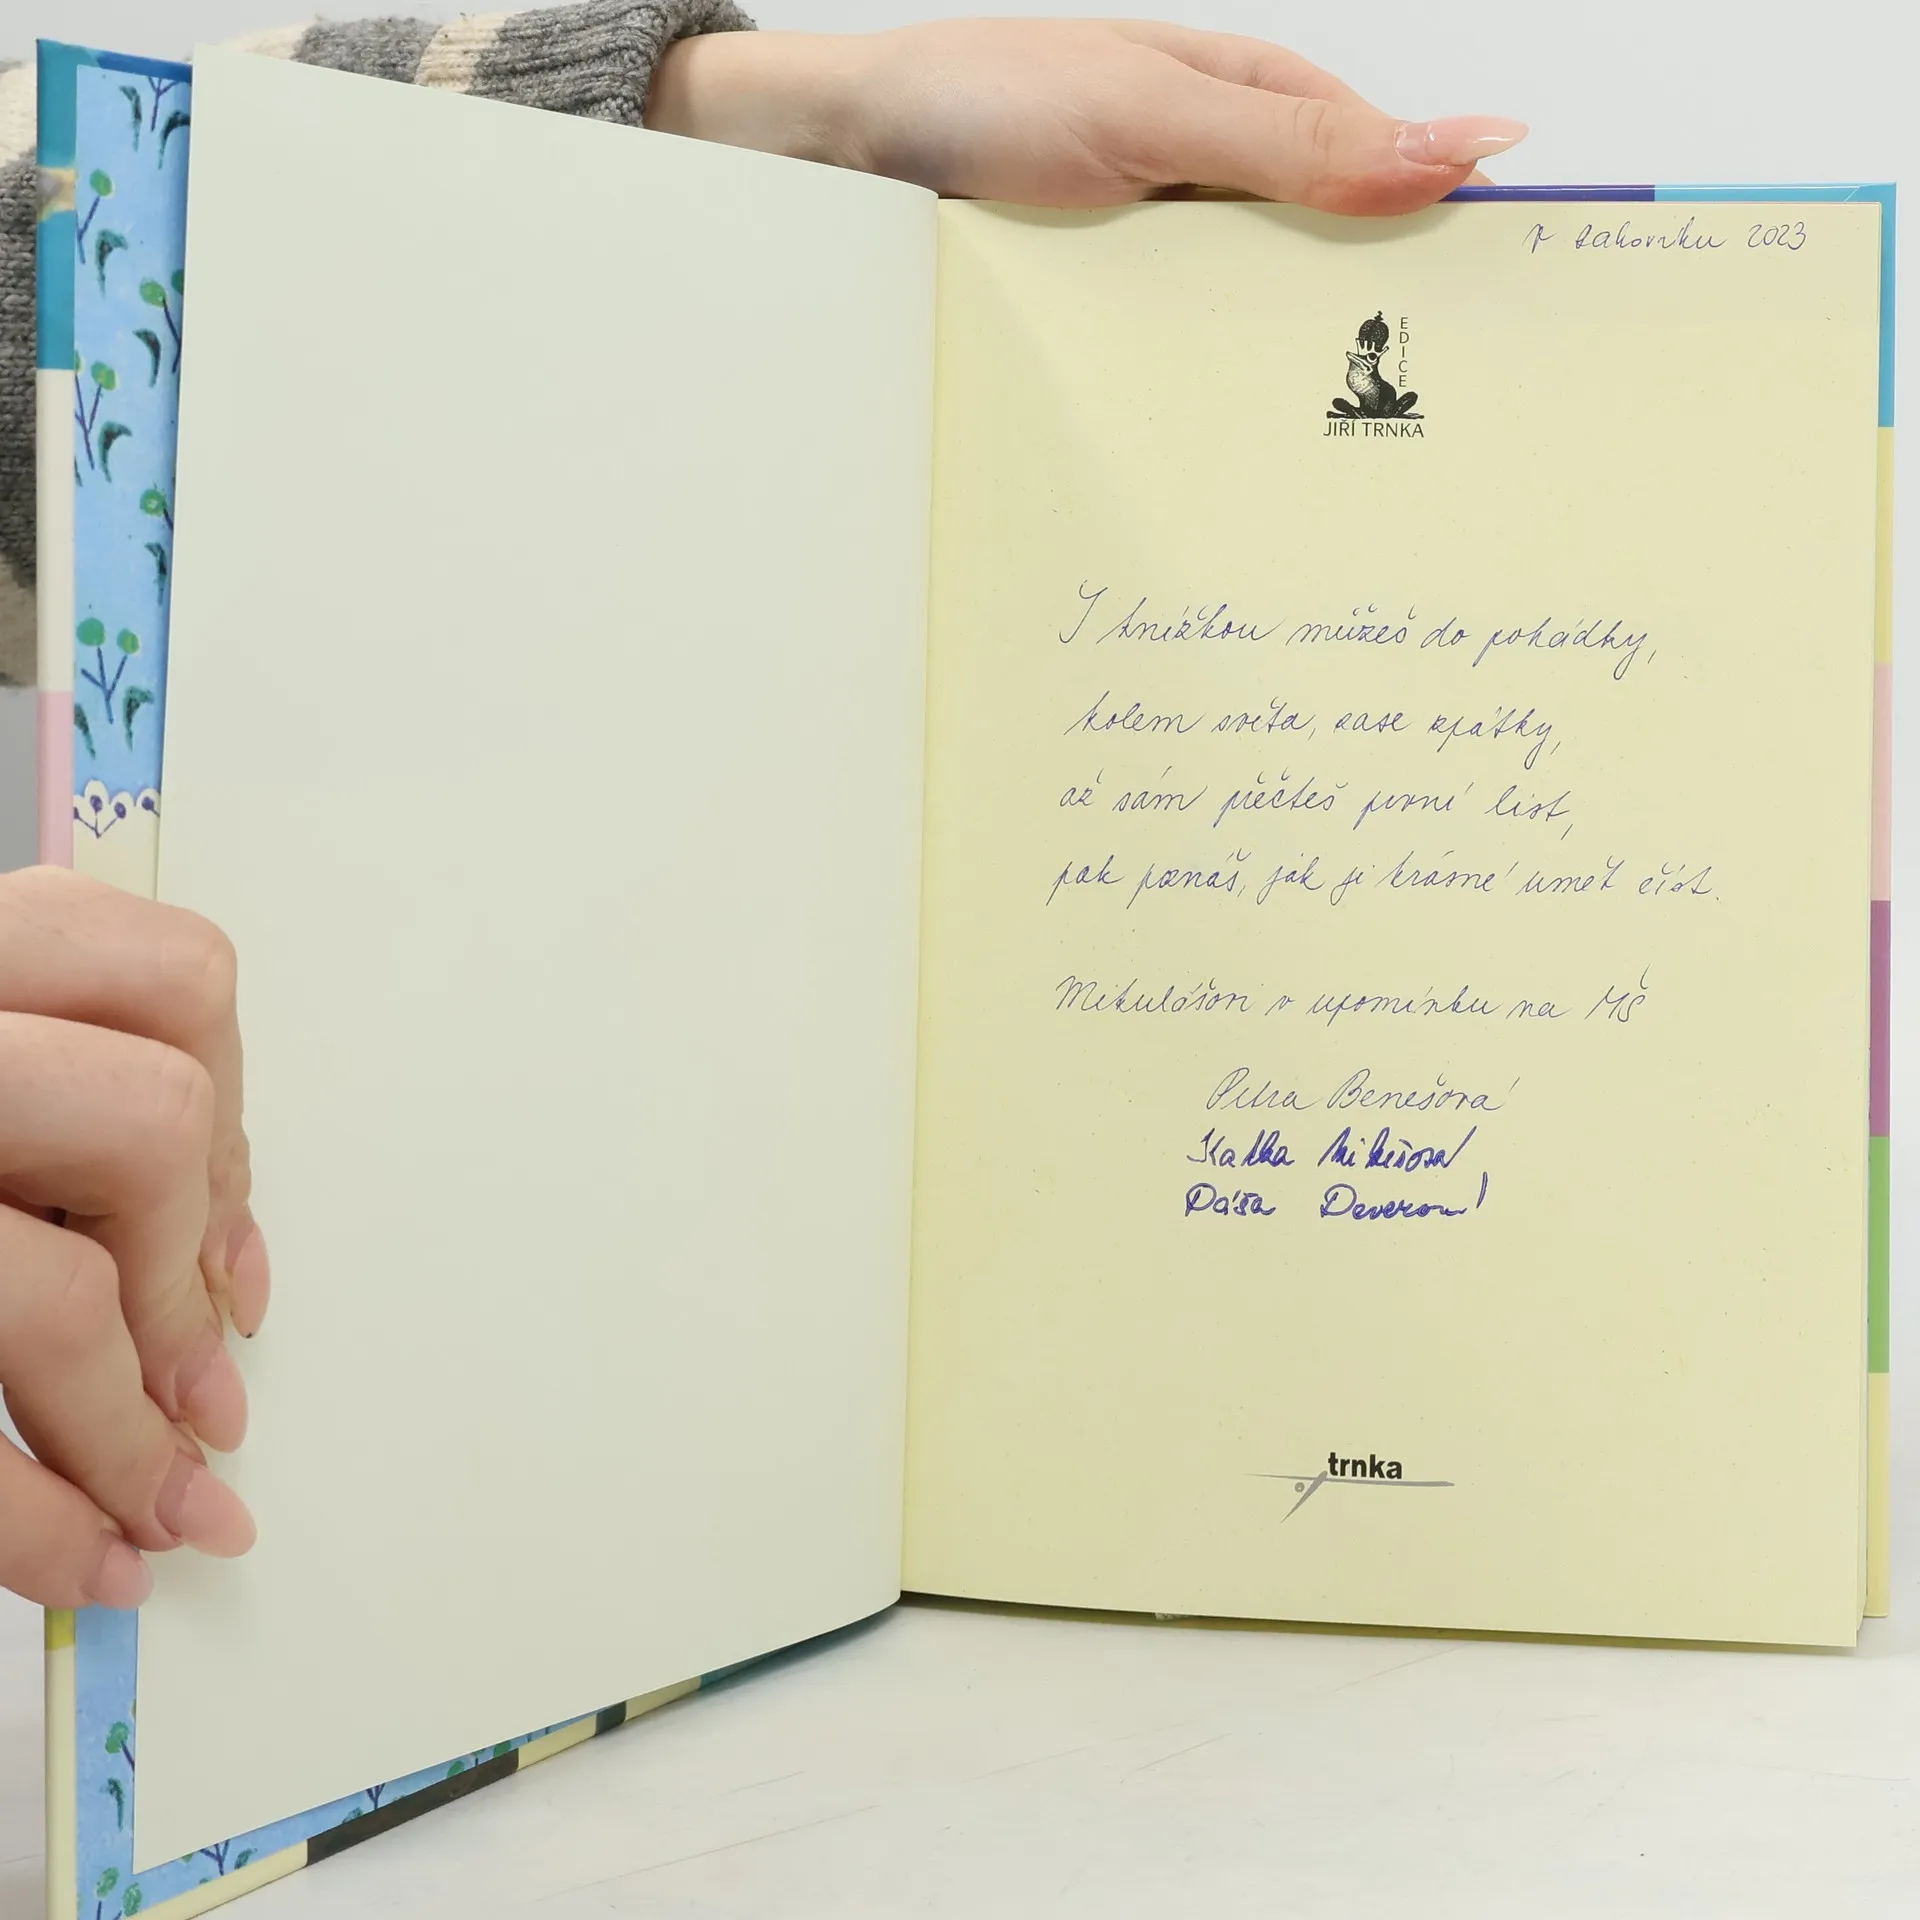 v Rakovníku 2023
EDICE
JIŘÍ TRNKA
S knížkou můžeš do pohádky,
kolem světa, zase zpátky,
až sám přečteš první list,
pak poznáš, jak je krásné umět číst.
Mikulášovi v upomínku na MŠ
Petra Benešová
Katka Mikešová
Dáša Deverová
trnka